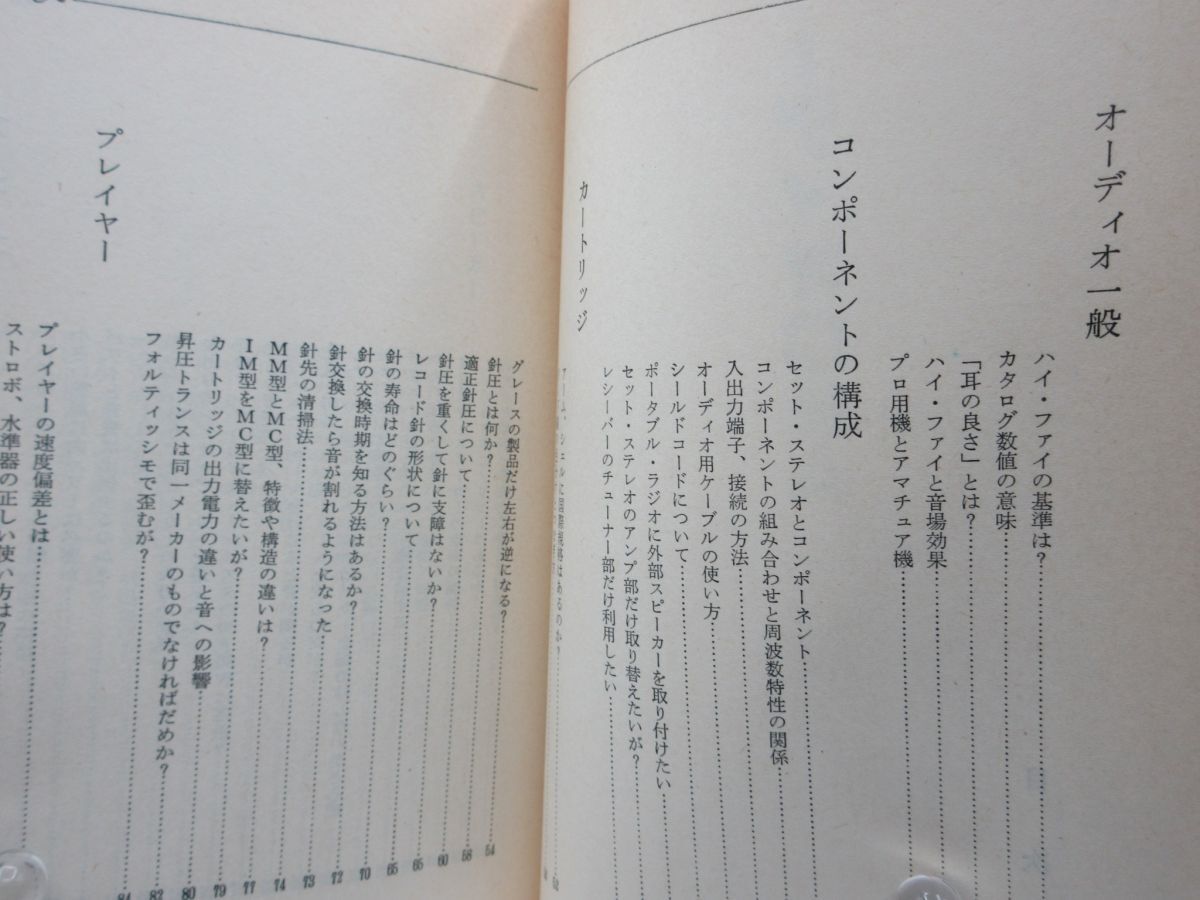 オーディオ一般
ハイ・ファイの基準は?
カタログ数値の意味
「耳の良さ」とは?
ハイ・ファイと音場効果
プロ用機とアマチュア機
コンポーネントの構成
セット・ステレオとコンポーネント
コンポーネントの組み合わせと周波数特性の関係
入出力端子、接続の方法
オーディオ用ケーブルの使い方
シールドコードについて
ポータブル・ラジオに外部スピーカーを取り付けたい
セット・ステレオのアンプ部だけ取り替えたいが?
レシーバーのチューナー部だけ利用したい
カートリッジ
アーム、シェルに国際規格はあるのか?
グレースの製品だけ左右が逆になる?
針圧とは何か? 54
適正針圧について 58
針圧を重くして針に支障はないか? 60
レコード針の形状について 65
針の寿命はどのぐらい? 65
針の交換時期を知る方法はあるか? 70
針交換したら音が割れるようになった 72
針先の清掃法 73
MM型とMC型、特徴や構造の違いは? 74
IM型をMC型に替えたいが? 77
カートリッジの出力電力の違いと音への影響 79
昇圧トランスは同一メーカーのものでなければだめか? 80
フォルティッシモで歪むが? 82
プレイヤー
プレイヤーの速度偏差とは 84
ストロボ、水準器の正しい使い方は?